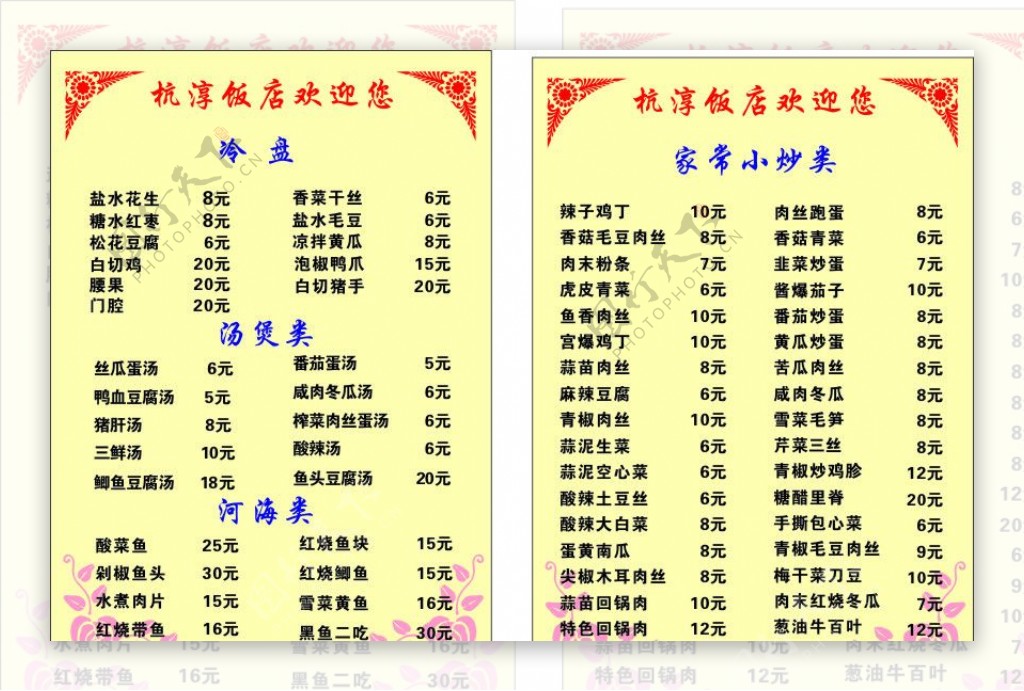 杭淳饭店欢迎您
冷盘
盐水花生 8元 香菜干丝 6元
糖水红枣 8元 盐水毛豆 6元
松花豆腐 6元 凉拌黄瓜 8元
白切鸡 20元 泡椒鸭爪 15元
腰果 20元 白切猪手 20元
门腔 20元
汤煲类
丝瓜蛋汤 6元 番茄蛋汤 5元
鸭血豆腐汤 5元 咸肉冬瓜汤 6元
猪肝汤 8元 榨菜肉丝蛋汤 6元
三鲜汤 10元 酸辣汤 6元
鲫鱼豆腐汤 18元 鱼头豆腐汤 20元
河海类
酸菜鱼 25元 红烧鱼块 15元
剁椒鱼头 30元 红烧鲫鱼 15元
水煮肉片 15元 雪菜黄鱼 16元
红烧带鱼 16元 黑鱼二吃 30元
杭淳饭店欢迎您
家常小炒类
辣子鸡丁 10元 肉丝跑蛋 8元
香菇毛豆肉丝 8元 香菇青菜 6元
肉末粉条 7元 韭菜炒蛋 7元
虎皮青菜 6元 酱爆茄子 10元
鱼香肉丝 10元 番茄炒蛋 8元
宫爆鸡丁 10元 黄瓜炒蛋 8元
蒜苗肉丝 8元 苦瓜肉丝 8元
麻辣豆腐 6元 咸肉冬瓜 8元
青椒肉丝 10元 雪菜毛笋 8元
蒜泥生菜 6元 芹菜三丝 8元
蒜泥空心菜 6元 青椒炒鸡胗 12元
酸辣土豆丝 6元 糖醋里脊 20元
酸辣大白菜 8元 手撕包心菜 6元
蛋黄南瓜 8元 青椒毛豆肉丝 9元
尖椒木耳肉丝 8元 梅干菜刀豆 10元
蒜苗回锅肉 10元 肉末红烧冬瓜 7元
特色回锅肉 12元 葱油牛百叶 12元